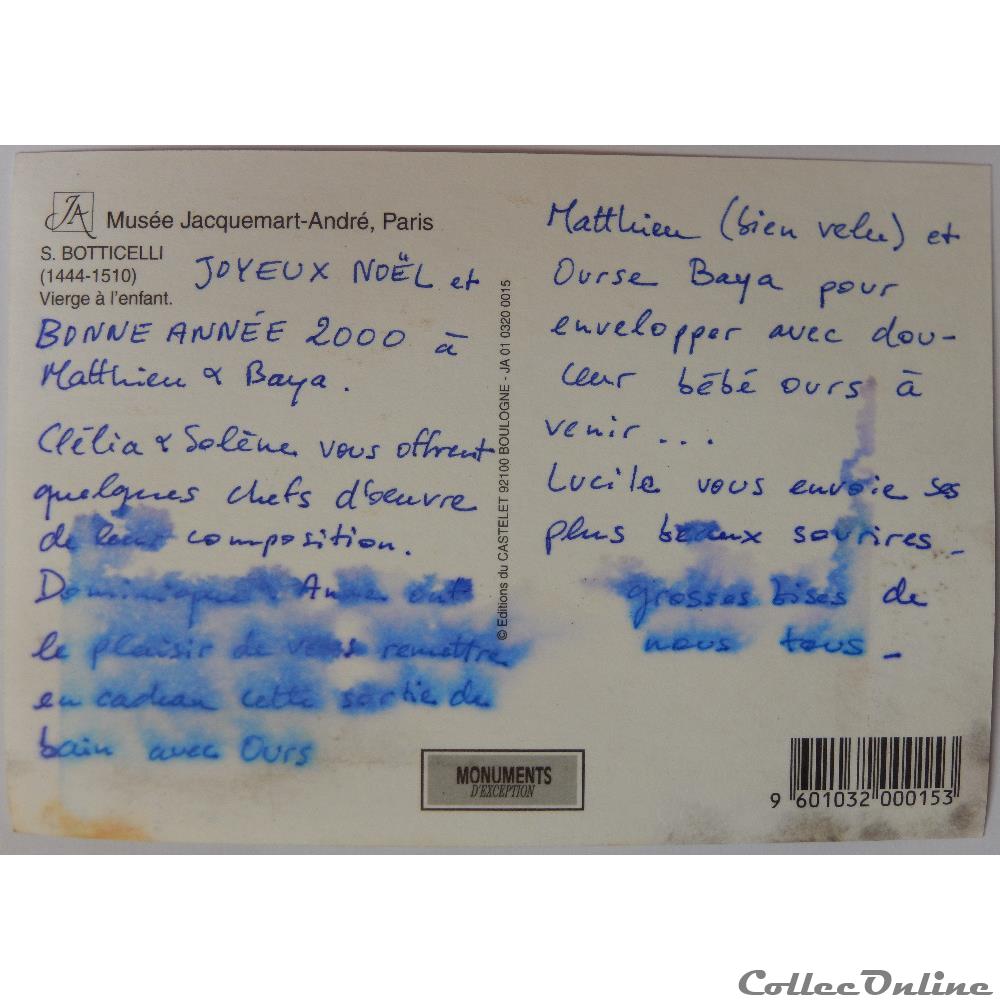 JA Musée Jacquemart-André, Paris
S. BOTTICELLI
(1444-1510)
Vierge à l'enfant.
JOYEUX NOËL et
BONNE ANNÉE 2000 à
Matthieu & Baya.
Clélia & Solène vous offrent
quelques chefs d'oeuvre
de leur composition.
Dominique & Anne ont
le plaisir de vous remettre
en cadeau cette sortie de
bain avec Ours
© Editions du CASTELET 92100 BOULOGNE - JA 01 0320 0015
Matthieu (bien velu) et
Ourse Baya pour
envelopper avec dou-
ceur bébé ours à
venir...
Lucile vous envoie ses
plus beaux sourires_
grosses bises de
nous tous_
MONUMENTS
D'EXCEPTION
9 601032 000153
CollecOnline